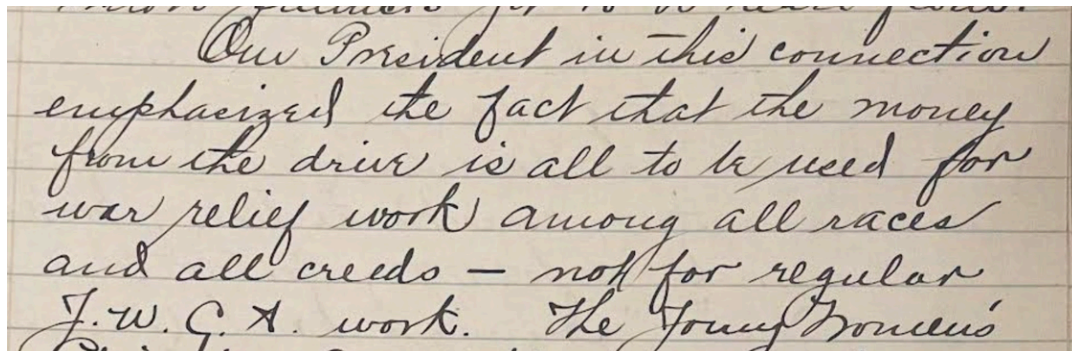 Our President in this connection
emphasized the fact that the money
from the drive is all to be used for
war relief work among all races
and all creeds — not for regular
Y.W.C.A. work. The Young Women's